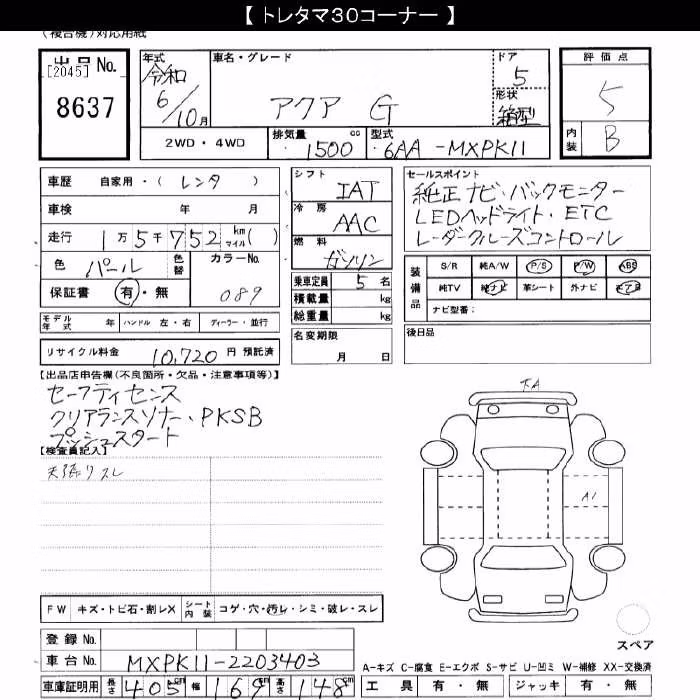 【 トレタマ30コーナー 】
(複合機)対応用紙
出品No. [2045] 8637
年式 令和 6/10月
車名・グレード アクア G
ドア 5
形状 箱型
評価点 5
内装 B
2WD・4WD 排気量 1500 cc 型式 6AA-MXPK11
車歴 自家用・(レンタ)
車検 年 月
走行 1万5千752 km マイル( )
色 パール 色替 カラーNo. 089
保証書 有・無
シフト IAT
冷房 AAC
燃料 ガソリン
乗車定員 5名
積載量 kg
総重量 kg
セールスポイント
純正ナビ・バックモニター
LEDヘッドライト・ETC
レーダークルーズコントロール
装備品 S/R 純A/W P/S P/W ABS
純TV 純ナビ 革シート 外ナビ エアB
ナビ型番:
モデル年式 年 ハンドル 左・右 ディーラー・並行
名変期限 月 日
後日品
リサイクル料金 10,720 円 預託済
【出品店申告欄(不良箇所・欠品・注意事項等)】
セーフティセンス
クリアランスソナー、PKSB
プッシュスタート
【検査員記入】
天張りスレ
下A
A1
FW キズ・トビ石・割レX シート内装 コゲ・穴・汚レ・シミ・破レ・スレ
スペア
登録No.
車台No. MXPK11-2203403
A-キズ C-腐食 E-エクボ S-サビ U-凹ミ W-補修 XX-交換済
車庫証明用 長さ 405cm 幅 169cm 高さ 148cm
工具 有・無 ジャッキ 有・無